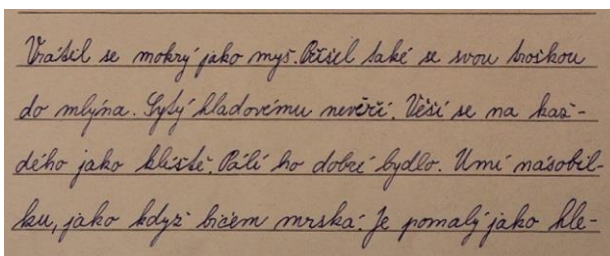 Vrátil se mokrý jako myš. Přišel také se svou troškou
do mlýna. Sytý hladovému nevěří. Věší se na kaž-
dého jako klíště. Pálí ho dobré bydlo. Umí násobil-
ku, jako když bičem mrská. Je pomalý jako hle-